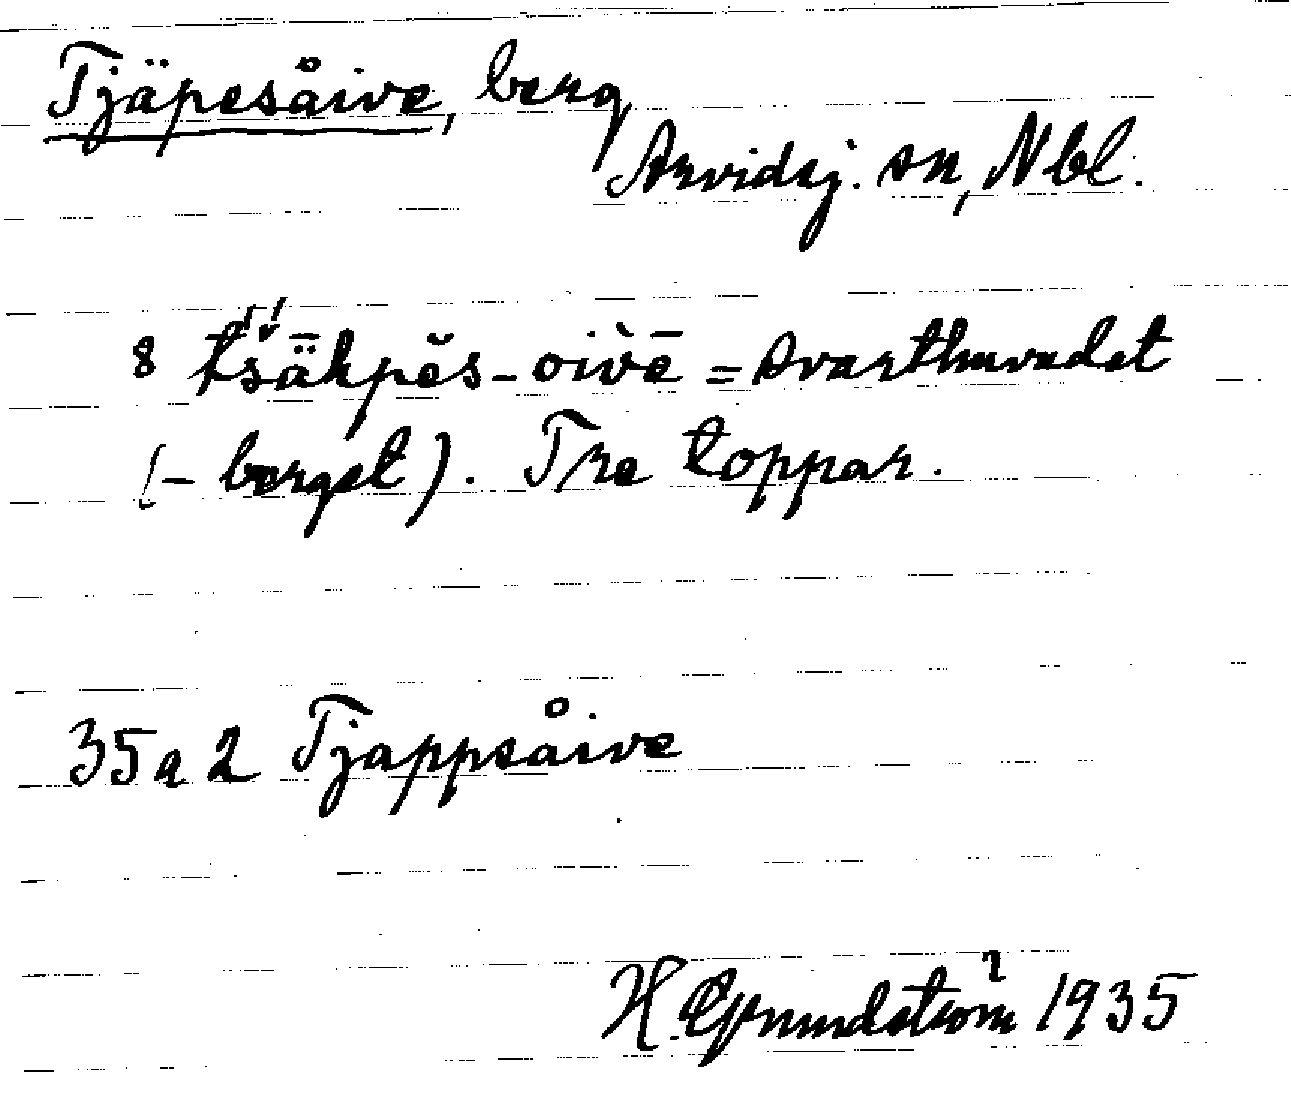 Tjäpesåive, berg
Arvidsj. sn, Nbl.
8 tsǟhpĕs-oivē = svarthuvudet
(- berget). Tre toppar.
35 a 2 Tjappsåive
H. Grundström 1935